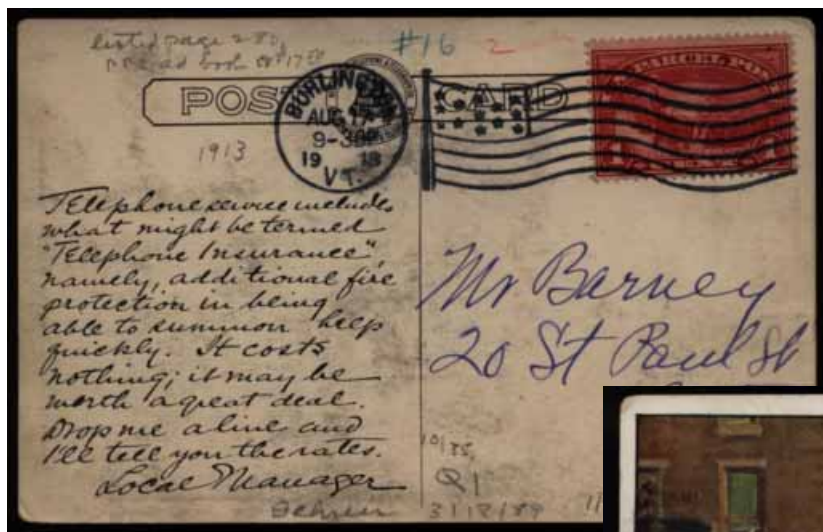 listed page 280
#16 2
POST CARD
U.S. PARCEL POST
BURLINGTON
AUG 17
9-30P
1913
VT.
1913
Telephone service includes
what might be termed
"Telephone Insurance",
namely, additional fire
protection in being
able to summon help
quickly. It costs
nothing; it may be
worth a great deal.
Drop me a line and
I'll tell you the rates.
Local Manager
Mr Barney
20 St Paul St
10/35
Q1
3/18/89